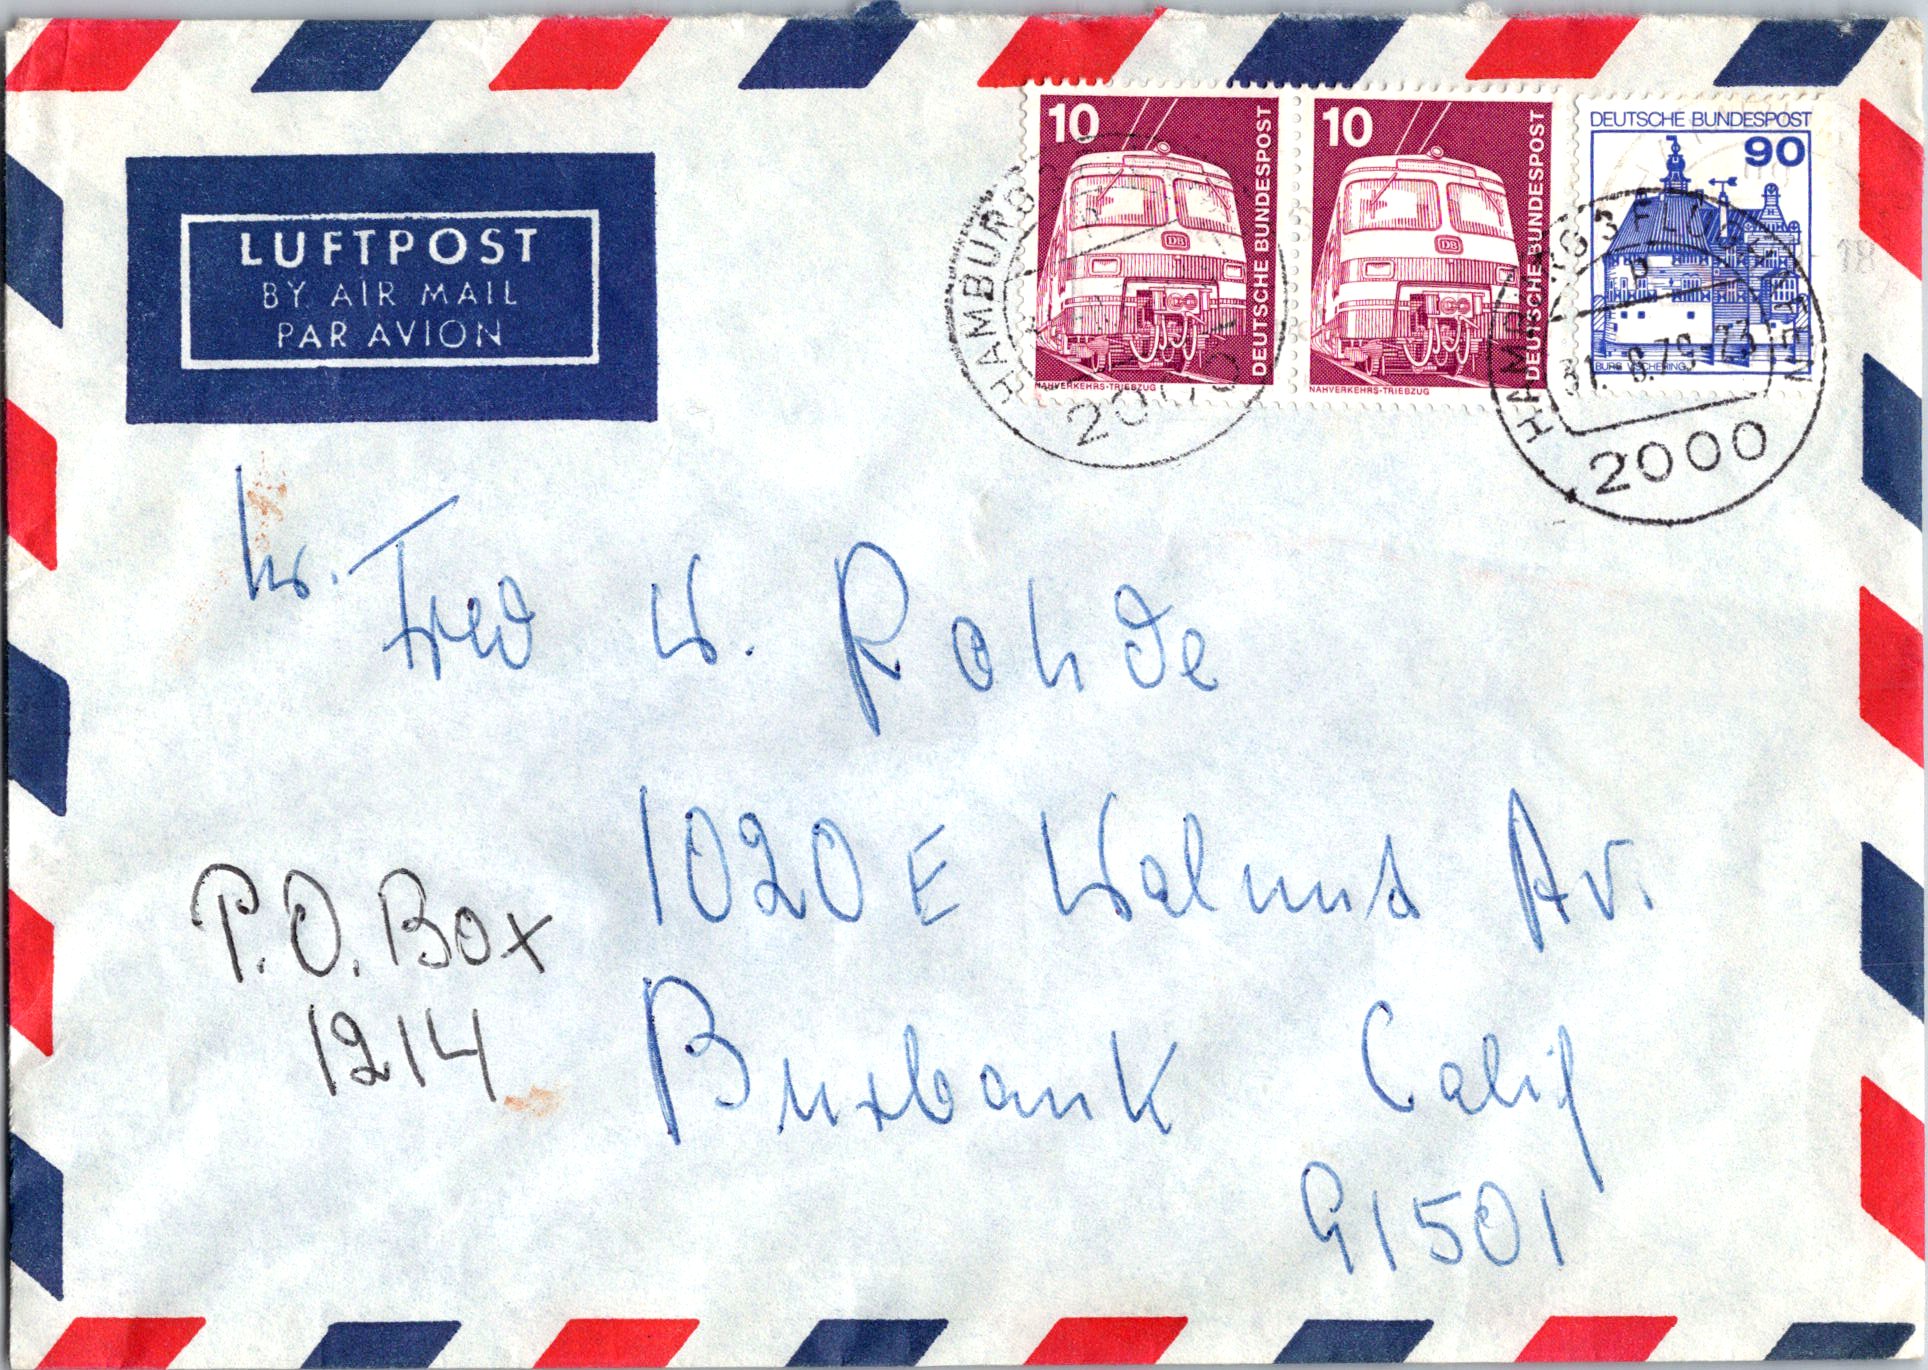 LUFTPOST
BY AIR MAIL
PAR AVION
10
DEUTSCHE BUNDESPOST
NAHVERKEHRS-TRIEBZUG
10
DEUTSCHE BUNDESPOST
NAHVERKEHRS-TRIEBZUG
DEUTSCHE BUNDESPOST
90
BURG VISCHERING
HAMBURG
2000
HAMBURG
2000
18
Fred W. Rohde
1020 E Walnut Av.
Burbank Calif
91501
P.O. Box
1214